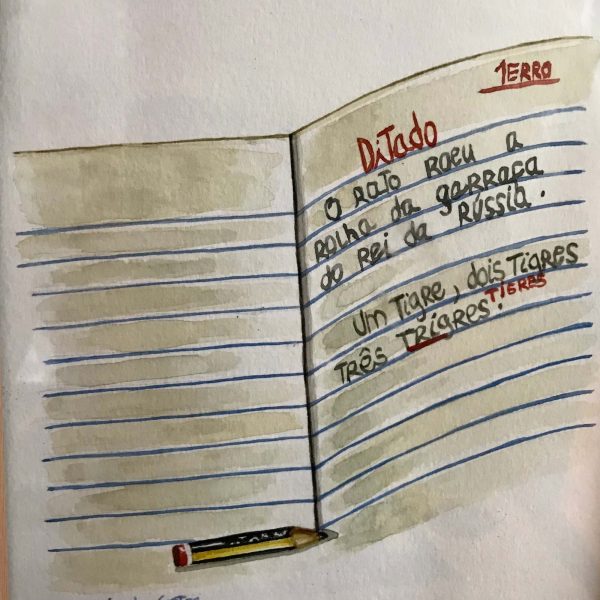 1ERRO
DiTado
O RaTO ROEU a
ROLHa da gaRRaFa
do Rei da RÚSSIa.
Um TigRe, dois TigRes
TIGRES
TRÊS TRIgRes.